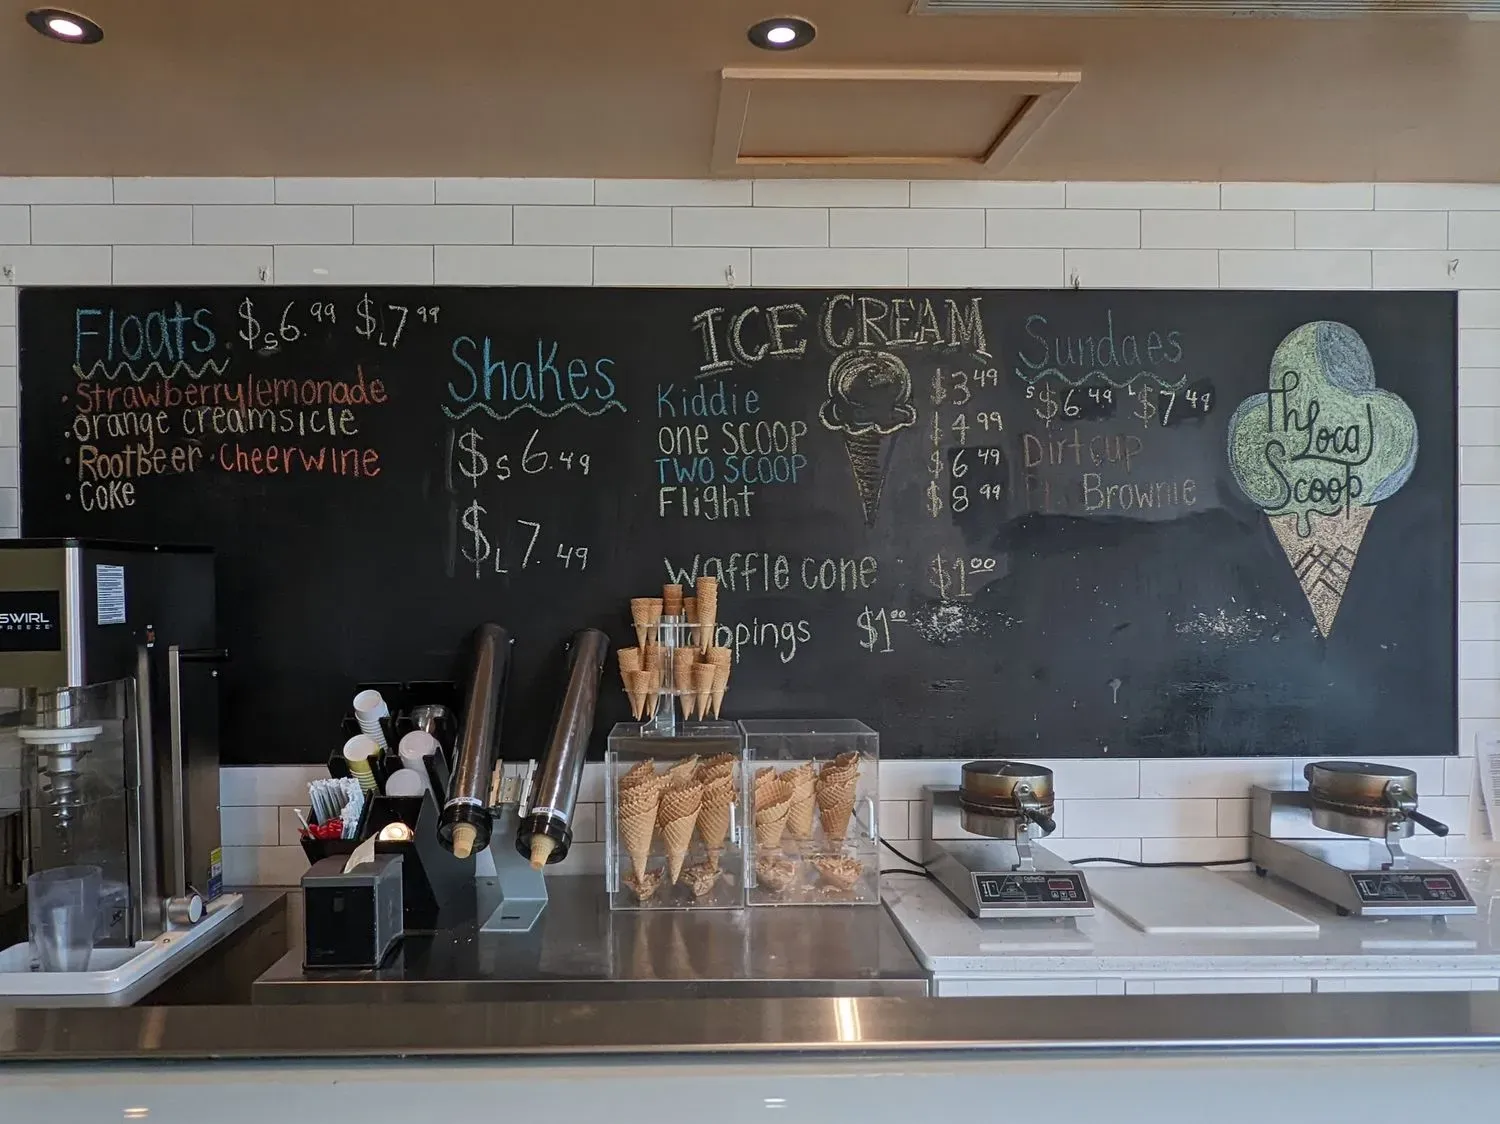 Floats $S6.99 $L7.99
· Strawberry lemonade
· orange creamsicle
· RootBeer · Cheerwine
· Coke
Shakes
$S6.49
$L7.49
ICE CREAM
Kiddie $3.49
one scoop $4.99
TWO SCOOP $6.49
Flight $8.99
waffle cone $1.00
$1.00
Sundaes
S $6.49 L $7.49
Dirt cup
Brownie
The Local
Scoop
SWIRL
FREEZE